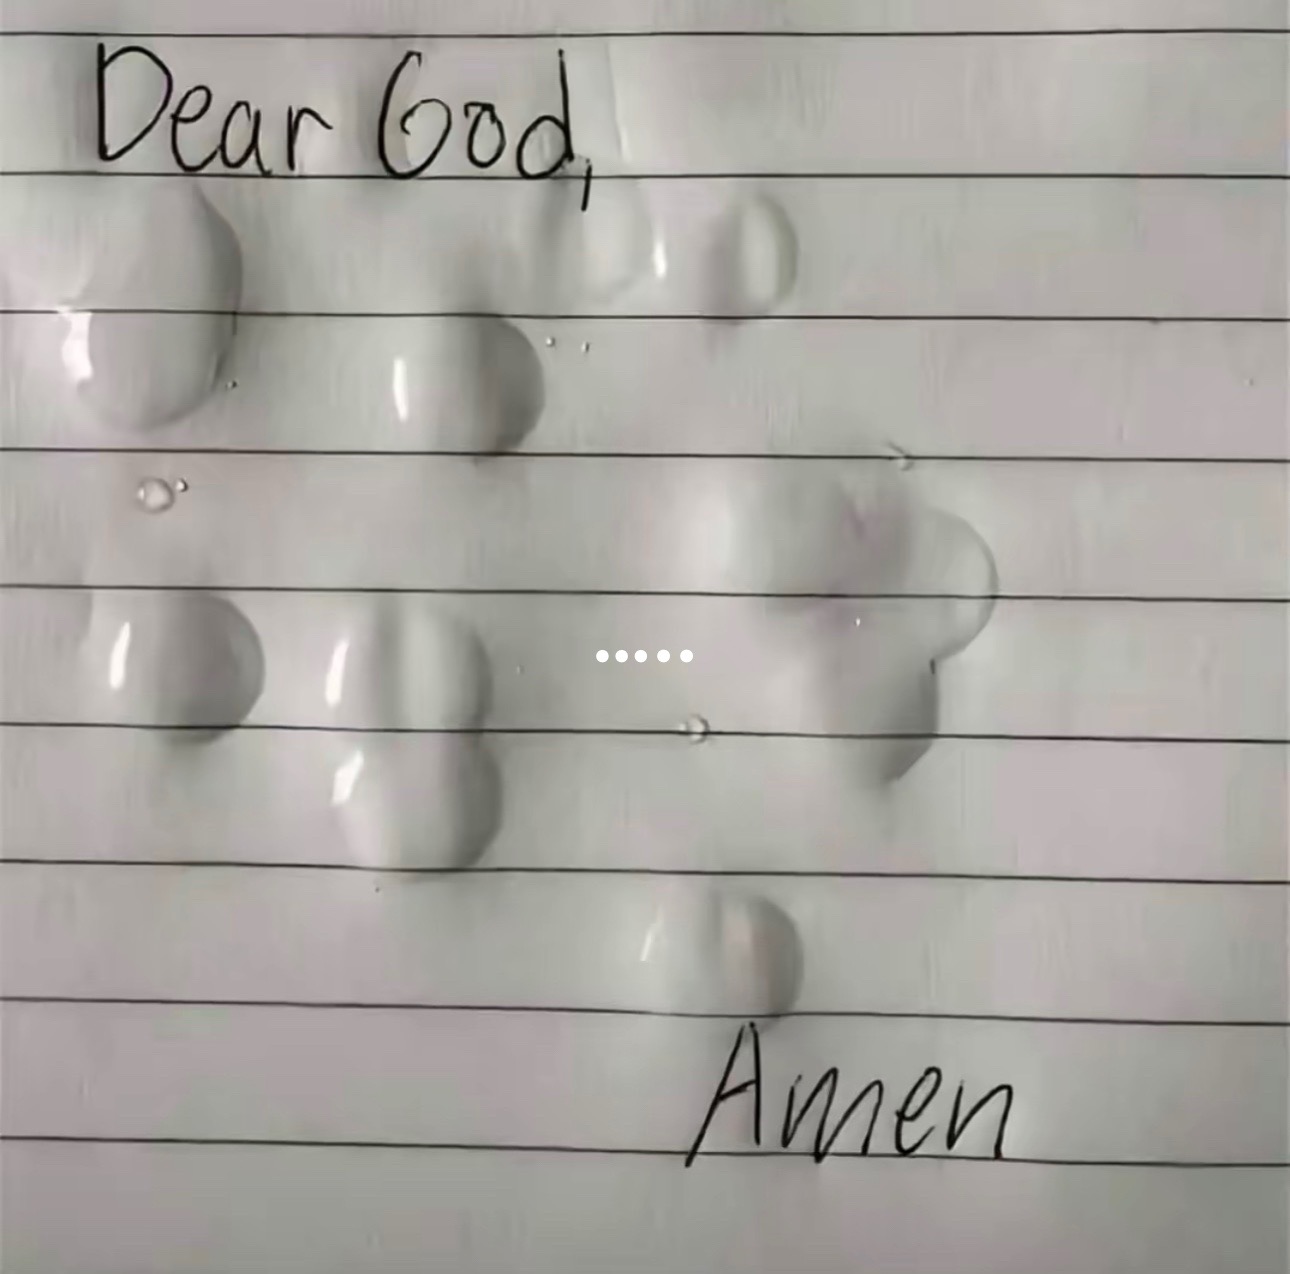 Dear God,
.....
Amen